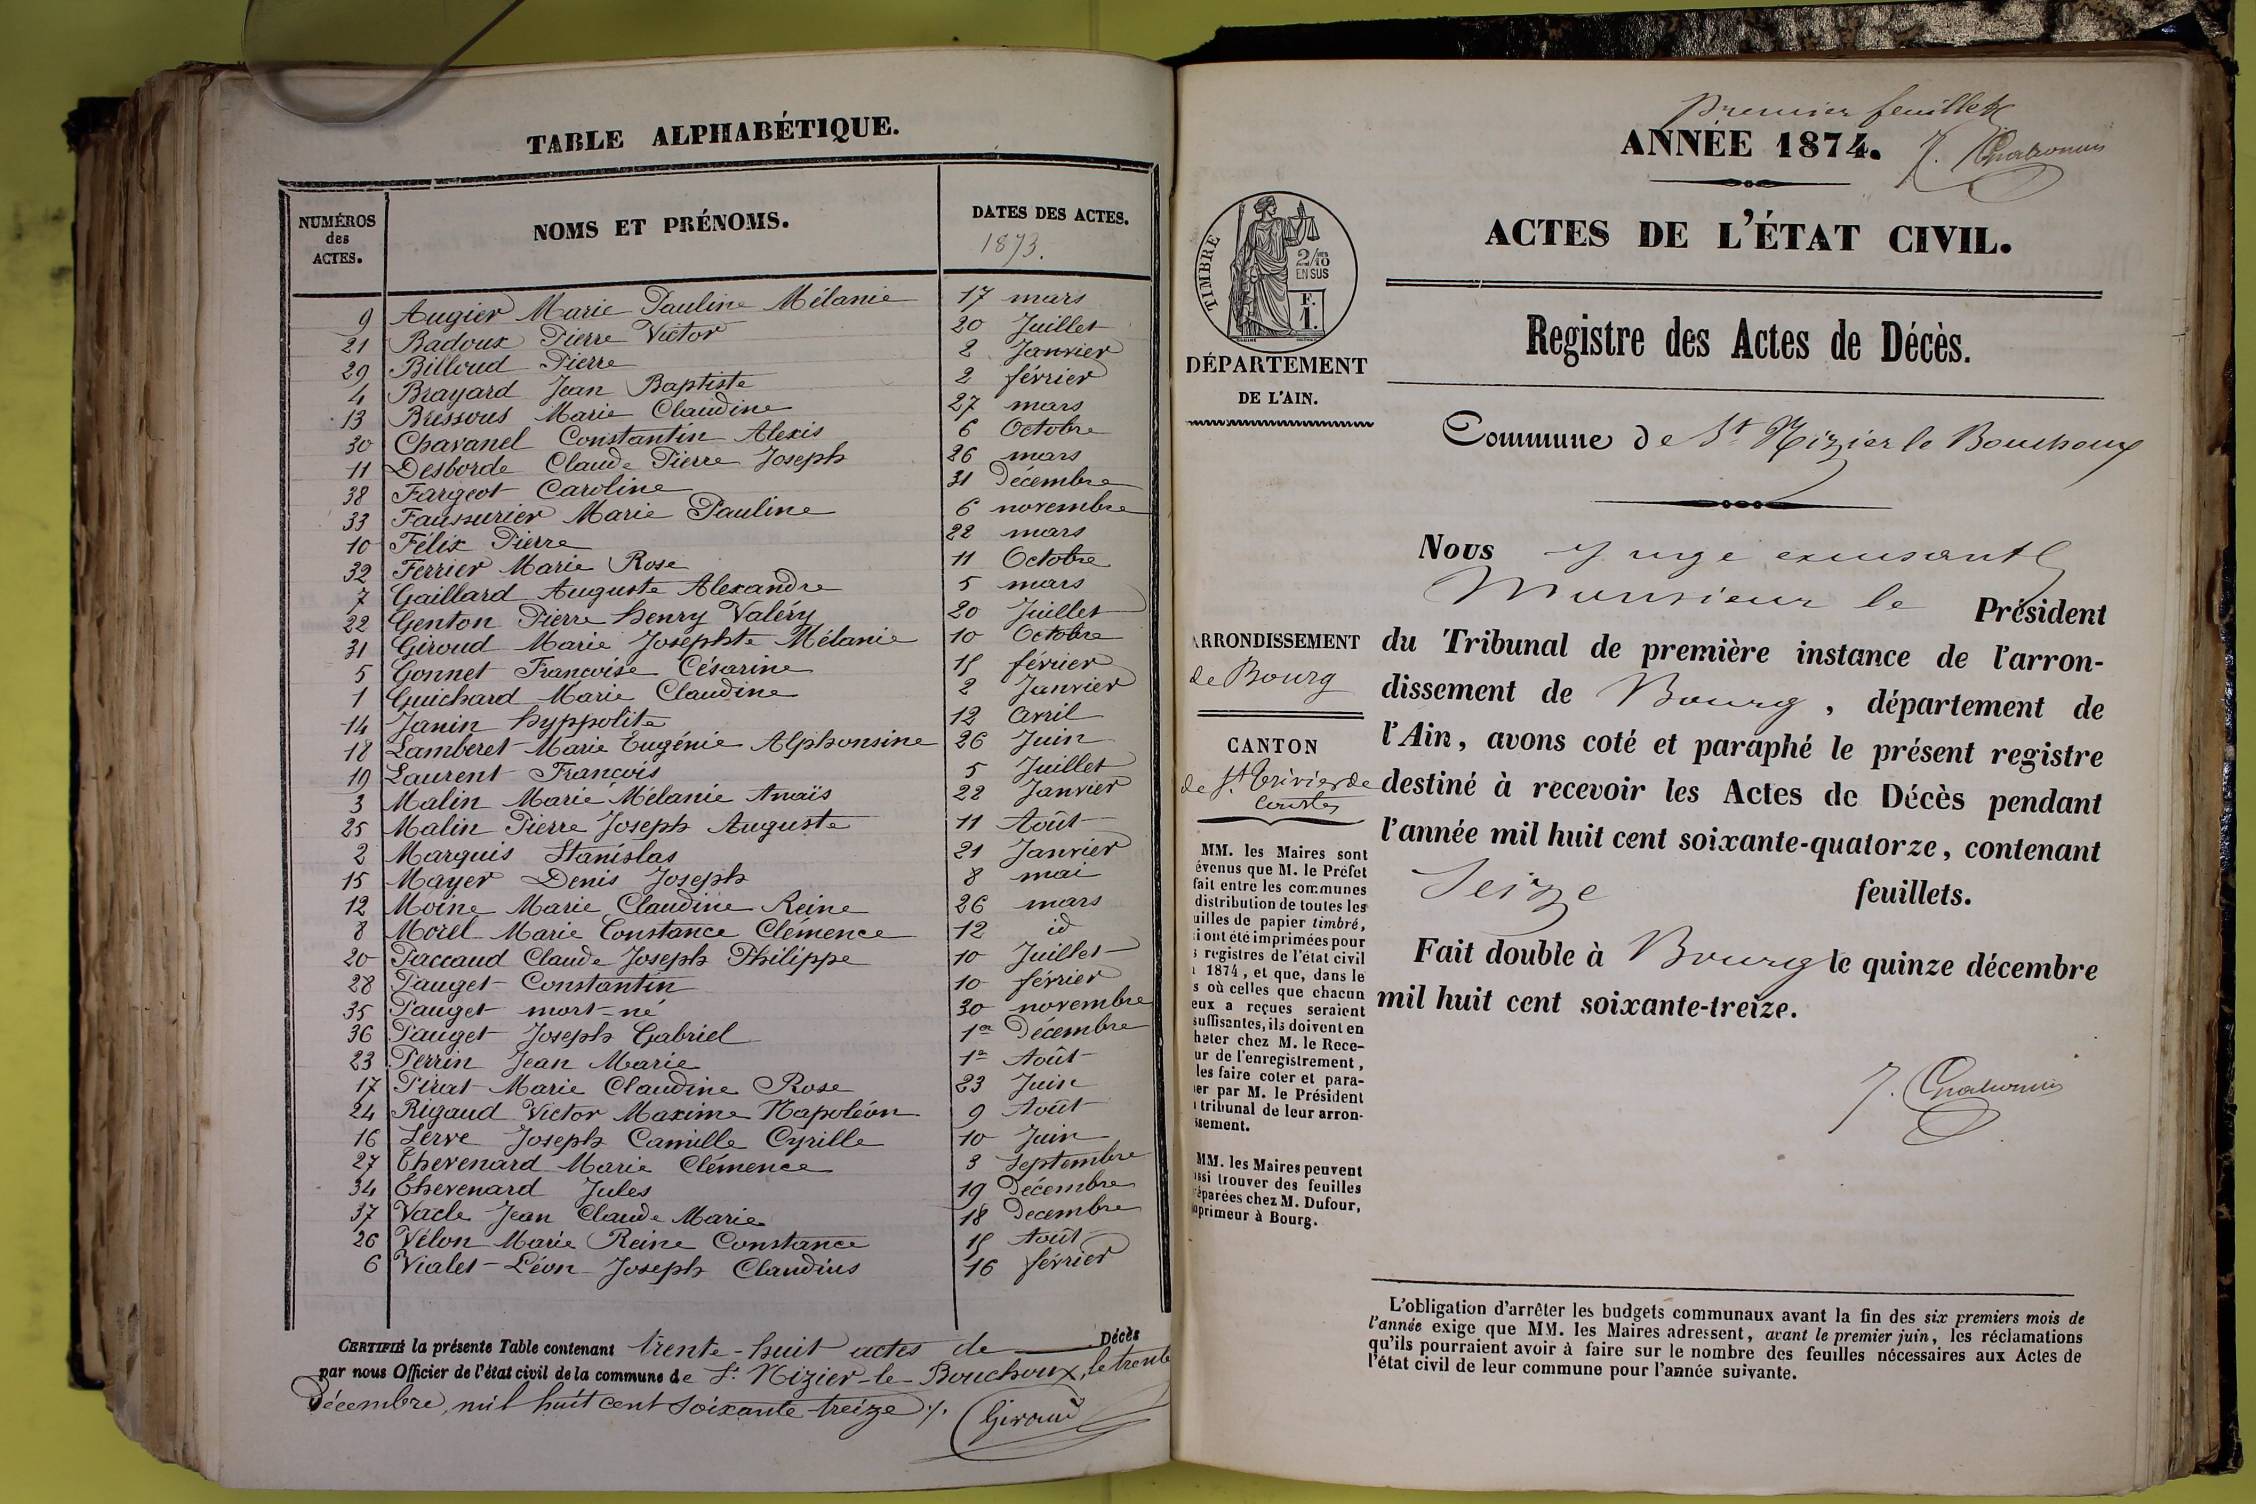 TABLE ALPHABÉTIQUE.
NUMÉROS des ACTES. NOMS ET PRÉNOMS. DATES DES ACTES. 1873.
9 Augier Marie Pauline Mélanie 17 mars
21 Badoux Pierre Victor 20 Juillet
29 Billoud Pierre 2 Janvier
4 Brayard Jean Baptiste 2 février
13 Bressous Marie Claudine 27 mars
30 Chavanel Constantin Alexis 6 Octobre
11 Desborde Claude Pierre Joseph 26 mars
38 Fargeot Caroline 31 Décembre
33 Faussurier Marie Pauline 6 novembre
10 Félix Pierre 22 mars
32 Ferrier Marie Rose 11 Octobre
7 Gaillard Auguste Alexandre 5 mars
22 Genton Pierre henry Valéry 20 Juillet
31 Giroud Marie Josephte Mélanie 10 Octobre
5 Gonnet Françoise Césarine 15 février
1 Guichard Marie Claudine 2 Janvier
14 Janin hyppolite 12 avril
18 Lamberet Marie Eugénie Alphonsine 26 Juin
19 Laurent François 5 Juillet
3 Malin Marie Mélanie Anaïs 22 Janvier
25 Malin Pierre Joseph Auguste 11 Août
2 Marquis Stanislas 21 Janvier
15 Mayer Denis Joseph 8 mai
12 Moine Marie Claudine Reine 26 mars
8 Morel Marie Constance Clémence 12 id
20 Paccaud Claude Joseph Philippe 10 Juillet
28 Pauget Constantin 10 février
35 Pauget mort-né 30 novembre
36 Pauget Joseph Gabriel 1er Décembre
23 Perrin Jean Marie 1er Août
17 Pirat Marie Claudine Rose 23 Juin
24 Rigaud Victor Maxime Napoléon 9 Août
16 Serve Joseph Camille Cyrille 10 Juin
27 Thevenard Marie Clémence 3 Septembre
34 Thevenard Jules 19 Décembre
37 Vacle Jean Claude Marie 18 Decembre
26 Vélon Marie Reine Constance 15 Août
6 Vialet Léon Joseph Claudius 16 février
CERTIFIÉ la présente Table contenant trente-huit actes de Décès
par nous Officier de l'état civil de la commune de St Nizier-le-Bouchoux, le trente
Décembre, mil huit cent soixante treize ./. Giroud
premier feuillet
ANNÉE 1874.
ACTES DE L'ÉTAT CIVIL.
TIMBRE
2/10
EN SUS
F.
1.
DÉPARTEMENT
DE L'AIN.
Registre des Actes de Décès.
Commune de St Nizier le Bouchoux
Nous Juge excusant
Monsieur le Président
du Tribunal de première instance de l'arron-
dissement de Bourg, département de
l'Ain, avons coté et paraphé le présent registre
destiné à recevoir les Actes de Décès pendant
l'année mil huit cent soixante-quatorze, contenant
Seize feuillets.
Fait double à Bourg le quinze décembre
mil huit cent soixante-treize.
ARRONDISSEMENT
de Bourg
CANTON
de St Trivier de
Courtes
MM. les Maires sont
évenus que M. le Préfet
fait entre les communes
distribution de toutes les
uilles de papier timbré,
i ont été imprimées pour
s registres de l'état civil
1874, et que, dans le
s où celles que chacun
eux a reçues seraient
suffisantes, ils doivent en
heter chez M. le Rece-
ur de l'enregistrement,
les faire coter et para-
er par M. le Président
tribunal de leur arron-
ssement.
MM. les Maires peuvent
ssi trouver des feuilles
éparées chez M. Dufour,
primeur à Bourg.
L'obligation d'arrêter les budgets communaux avant la fin des six premiers mois de
l'année exige que MM. les Maires adressent, avant le premier juin, les réclamations
qu'ils pourraient avoir à faire sur le nombre des feuilles nécessaires aux Actes de
l'état civil de leur commune pour l'année suivante.